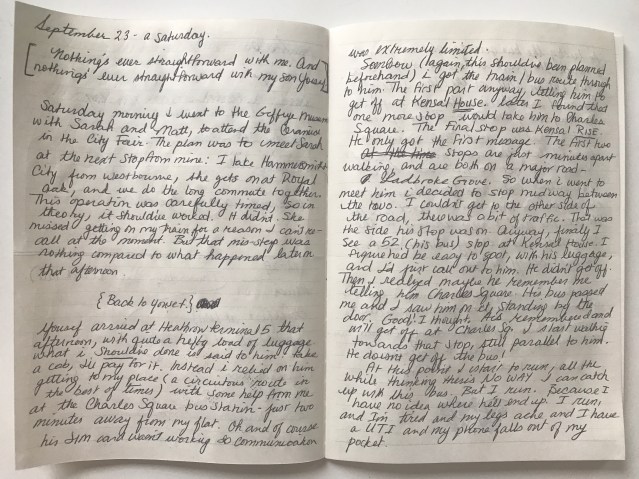 September 23 - a Saturday.
[Nothing's ever straightforward with me. And
nothing's ever straightforward with my son Yousef]
Saturday morning I went to the Geffrye Museum
with Sarah and Matt, to attend the Ceramics
in the City Fair. The plan was to meet Sarah
at the next stop from mine: I take Hammersmith
City from Westbourne, she gets on at Royal
Oak, and we do the long commute together.
This operation was carefully timed, so in
theory, it should've worked. It didn't. She
missed getting on my train for a reason I can't re-
call at the moment. But that mis-step was
nothing compared to what happened later in
that afternoon.
{Back to Yousef.}
Yousef arrived at Heathrow terminal 5 that
afternoon, with quite a hefty load of luggage
what I should've done is said to him: take
a cab, I'll pay for it. Instead I relied on him
getting to my place (a circuitous route in
the best of times) with some help from me
at the Charles Square bus station - just two
minutes away from my flat. Oh and of course
his SIM card wasn't working so communication
was extremely limited.
Somehow (again, this should've been planned
beforehand) I got the train/bus route through
to him. The first part anyway, telling him to
get off at Kensal House. Later I found that
one more stop would take him to Charles
Square. The final stop was Kensal Rise.
He only got the first message. The first two
stops are just minutes apart
walking, and are both on a major road -
Ladbroke Grove. So when I went to
meet him I decided to stop midway between
the two. I couldn't get to the other side of
the road, there was a bit of traffic. That was
the side his stop was on. Anyway, finally I
see a 52 (his bus) stop at Kensal House. I
figured he'd be easy to spot, with his luggage,
and I'd just call out to him. He didn't get off.
Then I realized maybe he remembers me
telling him Charles Square. His bus passed
me and I saw him on it, standing by the
door. Good, I thought. He's remembered and
will get off at Charles Sq. I start walking
towards that stop, still parallel to him.
He doesn't get off the bus!
At this point I start to run, all the
while thinking there's NO WAY I can catch
up with this bus. But I run. Because I
have no idea where he'll end up. I run,
and I'm tired and my legs ache and I have
a UTI and my phone falls out of my
pocket